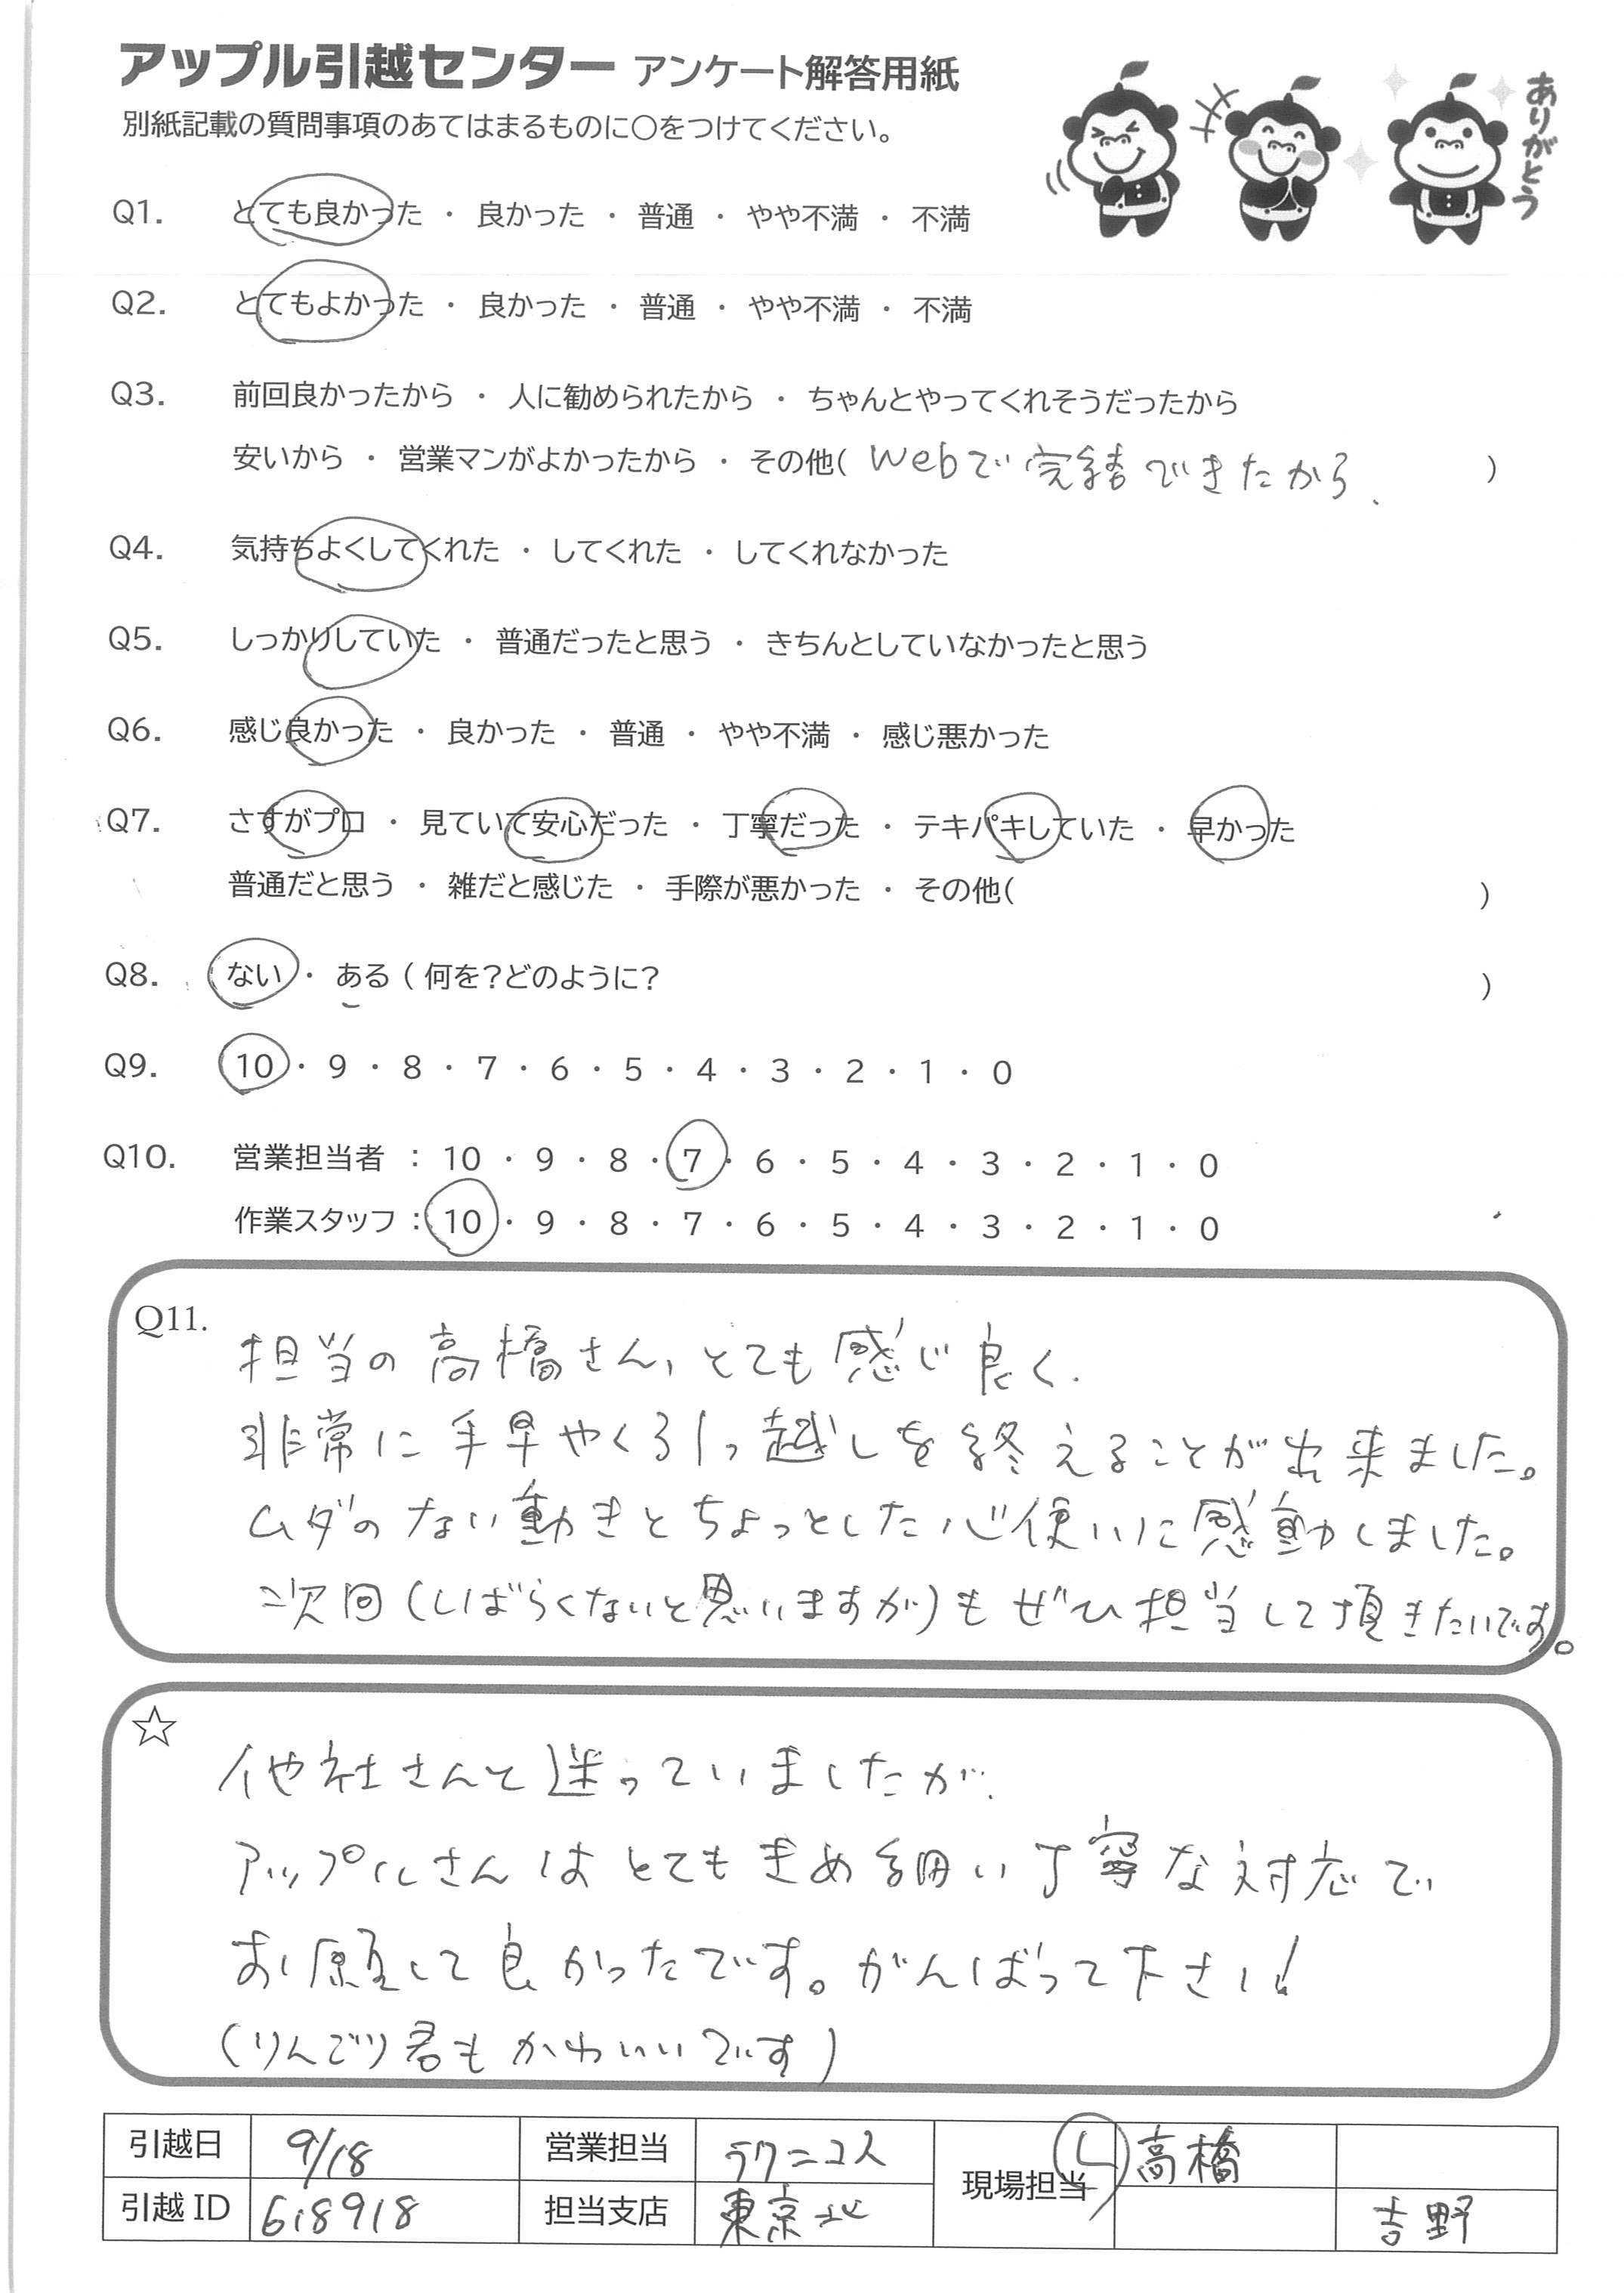 アップル引越センター アンケート解答用紙
別紙記載の質問事項のあてはまるものに○をつけてください。
ありがとう
Q1. とても良かった ・ 良かった ・ 普通 ・ やや不満 ・ 不満
Q2. とてもよかった ・ 良かった ・ 普通 ・ やや不満 ・ 不満
Q3. 前回良かったから ・ 人に勧められたから ・ ちゃんとやってくれそうだったから
安いから ・ 営業マンがよかったから ・ その他( Webで完結できたから. )
Q4. 気持ちよくしてくれた ・ してくれた ・ してくれなかった
Q5. しっかりしていた ・ 普通だったと思う ・ きちんとしていなかったと思う
Q6. 感じ良かった ・ 良かった ・ 普通 ・ やや不満 ・ 感じ悪かった
Q7. さすがプロ ・ 見ていて安心だった ・ 丁寧だった ・ テキパキしていた ・ 早かった
普通だと思う ・ 雑だと感じた ・ 手際が悪かった ・ その他( )
Q8. ない ・ ある ( 何を?どのように? )
Q9. 10 ・ 9 ・ 8 ・ 7 ・ 6 ・ 5 ・ 4 ・ 3 ・ 2 ・ 1 ・ 0
Q10. 営業担当者 : 10 ・ 9 ・ 8 ・ 7 ・ 6 ・ 5 ・ 4 ・ 3 ・ 2 ・ 1 ・ 0
作業スタッフ : 10 ・ 9 ・ 8 ・ 7 ・ 6 ・ 5 ・ 4 ・ 3 ・ 2 ・ 1 ・ 0
Q11. 担当の高橋さん、とても感じ良く.
非常に手早やく引っ越しを終えることが出来ました。
ムダのない動きとちょっとした心使いに感動しました。
次回(しばらくないと思いますが)もぜひ担当して頂きたいです。
☆ 他社さんと迷っていましたが.
アップルさんはとてもきめ細い丁寧な対応で
お願いして良かったです。がんばって下さい!
(りんごり君もかわいいです)
引越日 9/18 営業担当 ラクニコス 現場担当 L 高橋
引越ID 618918 担当支店 東京北 吉野